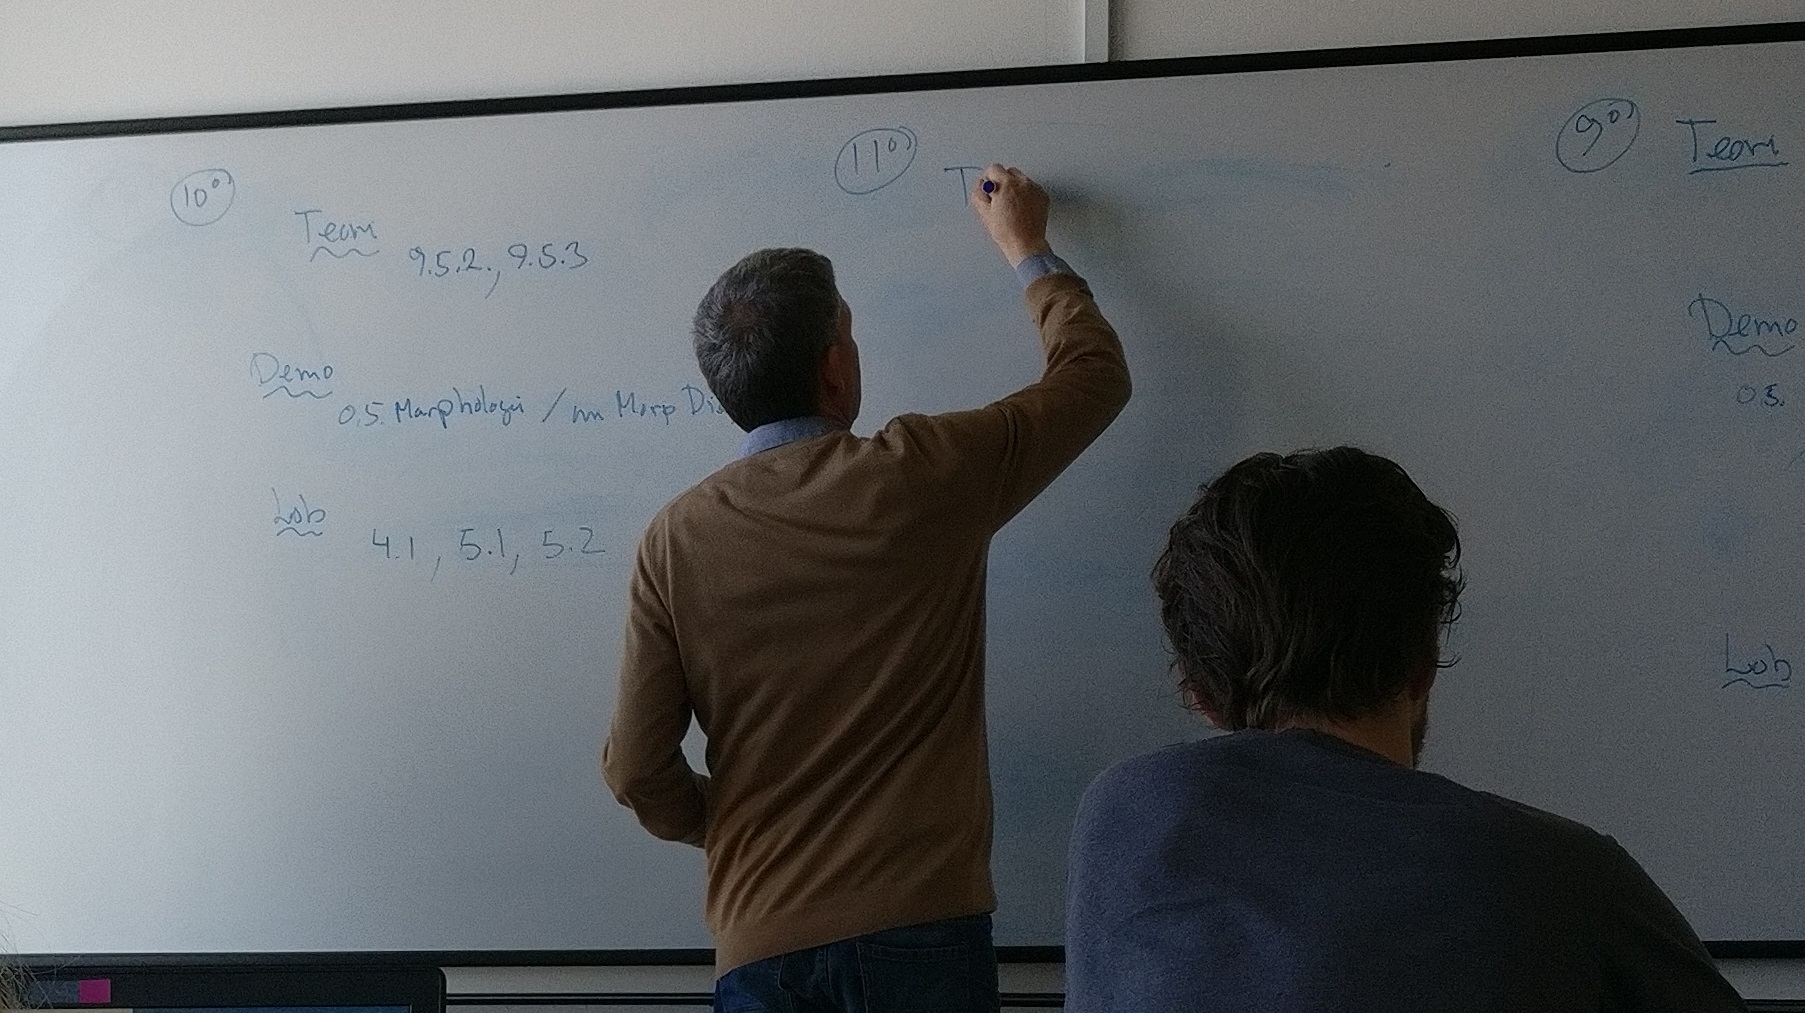 10⁰⁾
Team
9.5.2., 9.5.3
Demo
0.5. Morphologi / nn Morp Dis
Lab
4.1, 5.1, 5.2
11⁰⁾
T
9⁰⁾ Team
Demo
0.5.
Lab